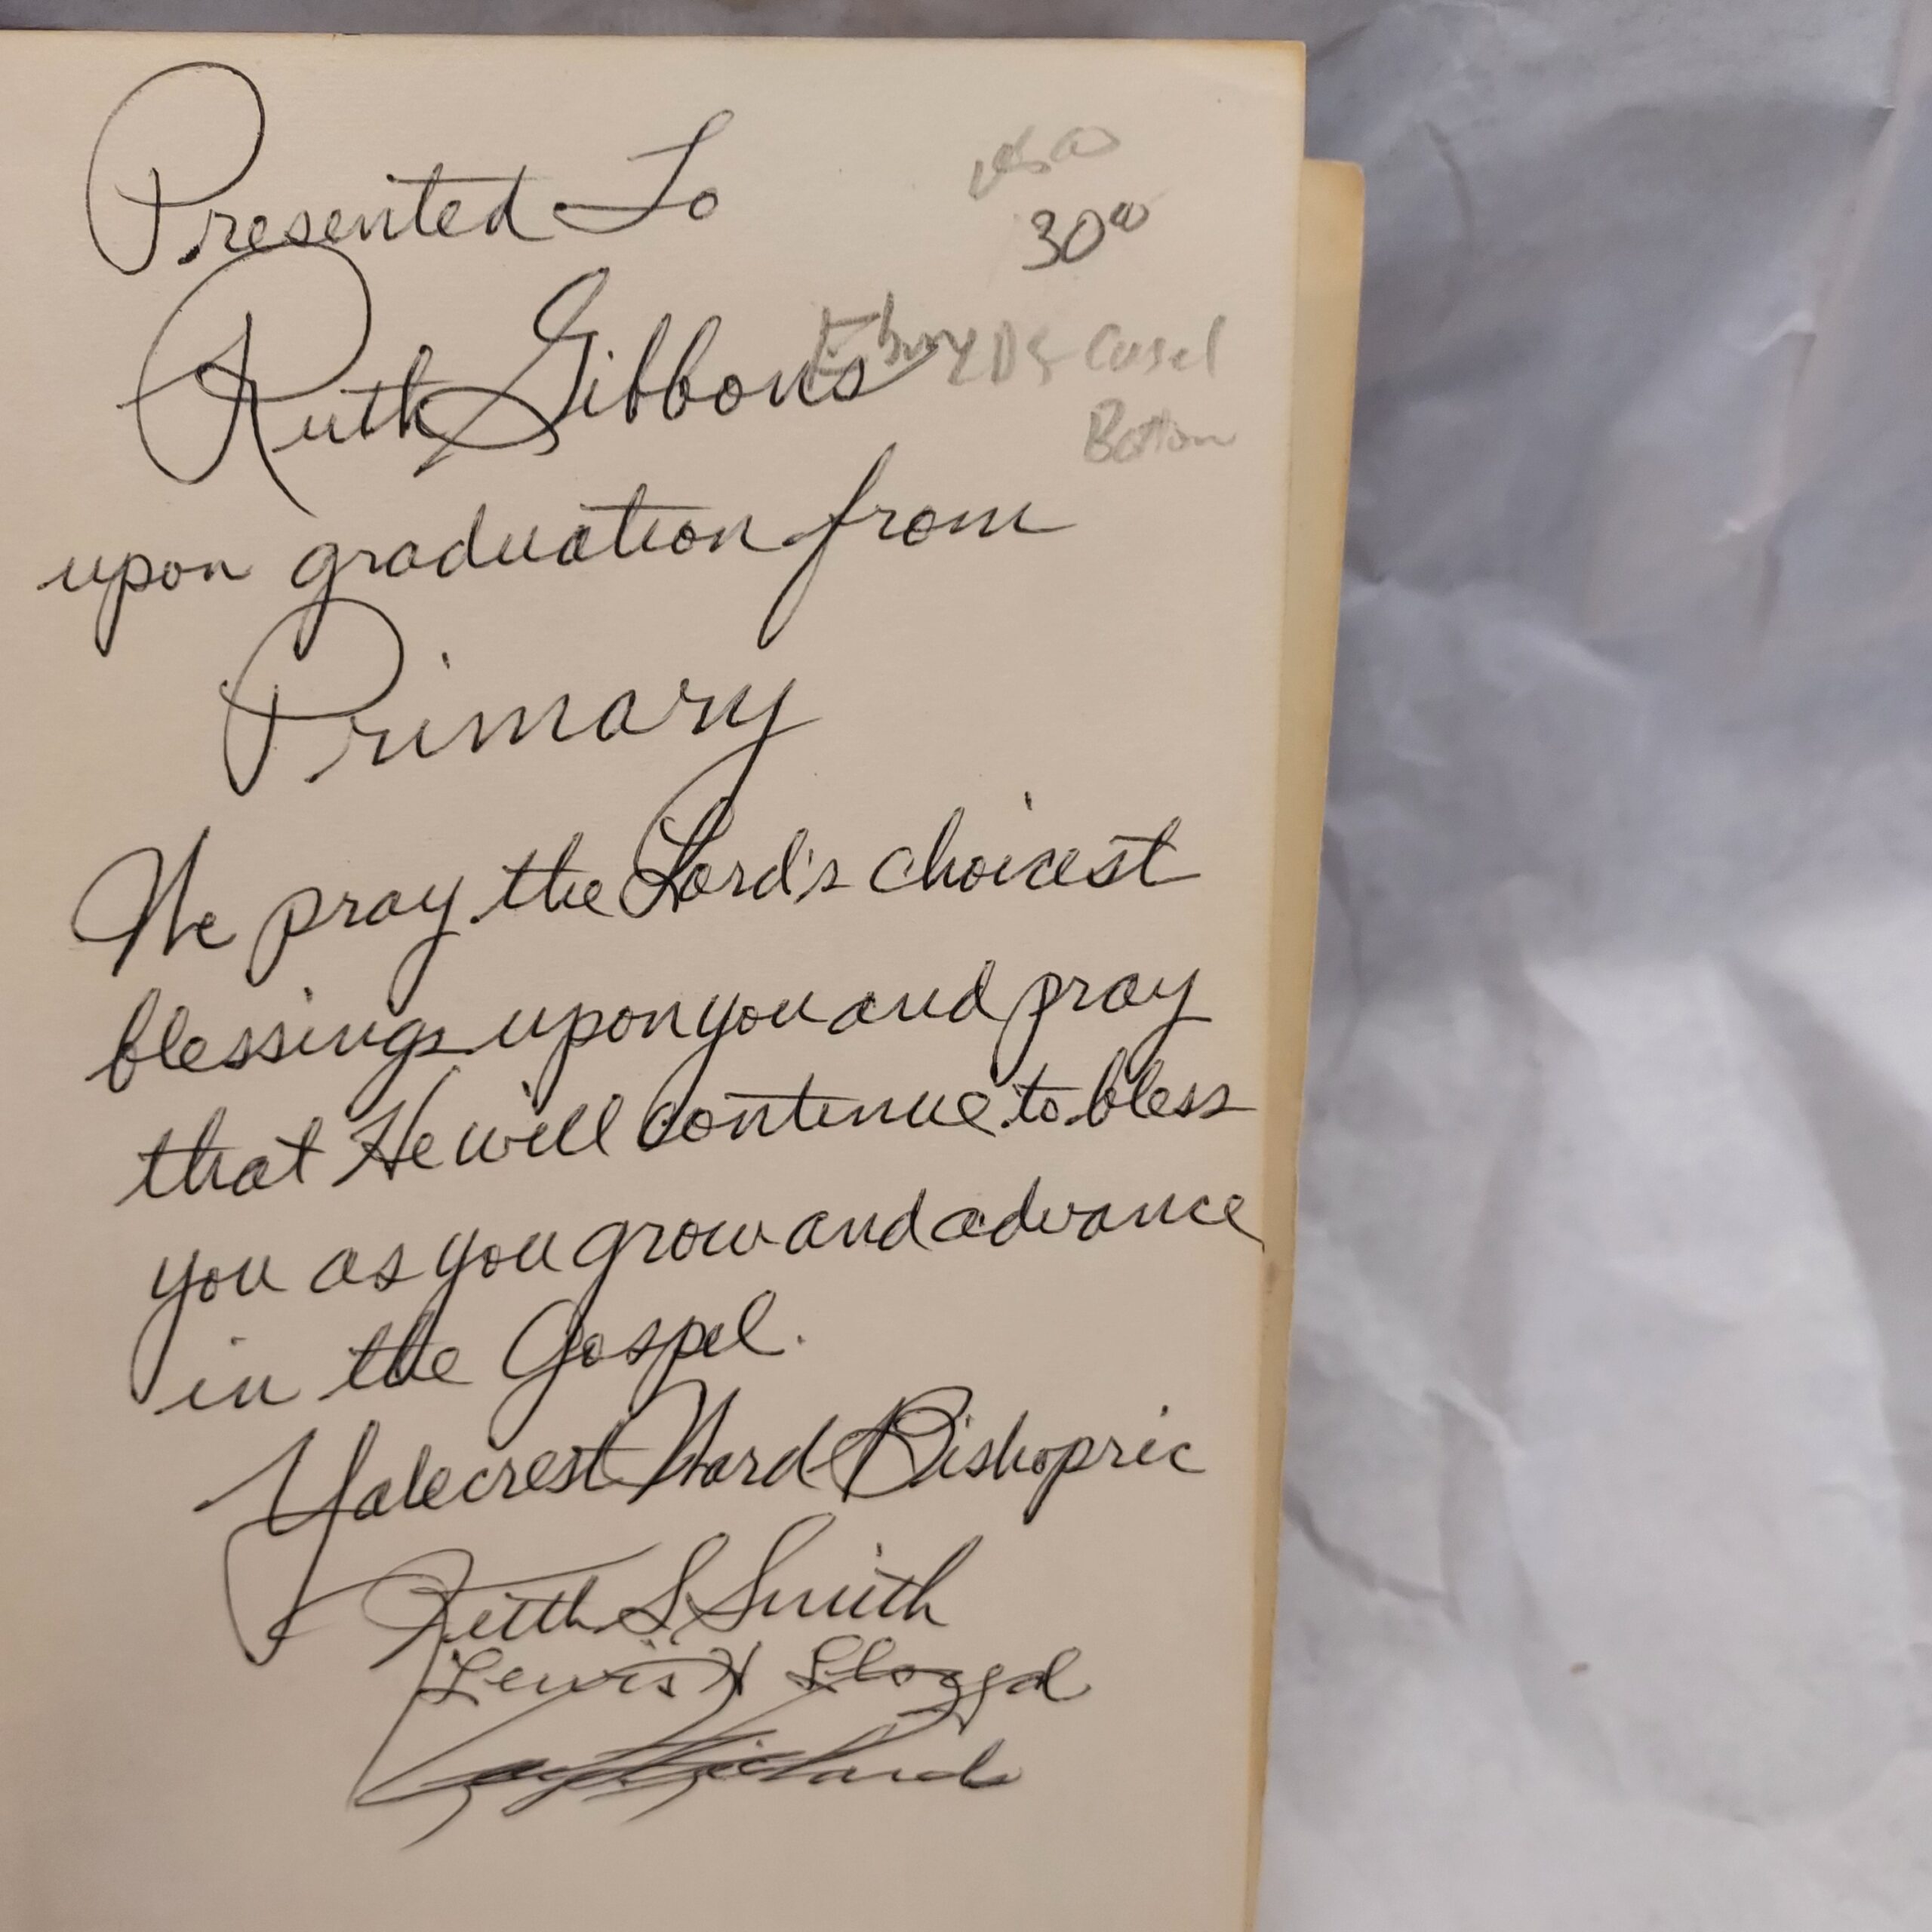 Presented To
30⁰⁰
Ruth Gibbons
LDS Casel
Bottom
upon graduation from
Primary
We pray the Lord's choicest
blessings upon you and pray
that He will continue to bless
you as you grow and advance
in the Gospel.
Yalecrest Ward Bishopric
Keith S Smith
Lewis H Lloyd
Richards